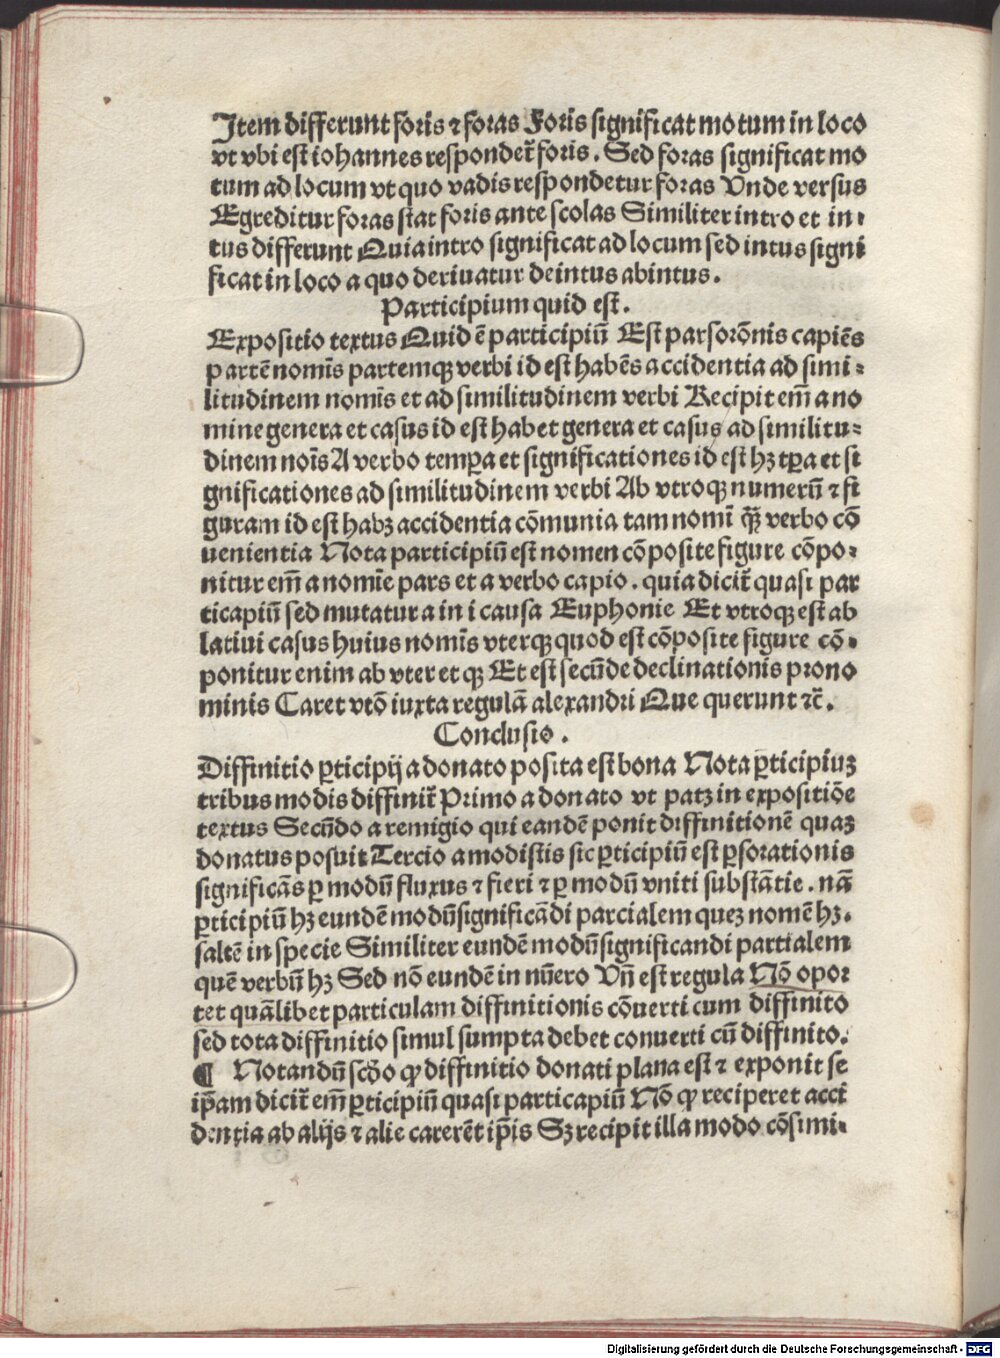 Item differunt foris ⁊ foras Foris significat motum in loco
vt vbi est iohannes respondet̃ foris. Sed foras significat mo
tum ad locum vt quo vadis respondetur foras Vnde versus
Egreditur foras stat foris ante scolas Similiter intro et in⸗
tus differunt Quia intro significat ad locum sed intus signi
ficat in loco a quo deriuatur deintus abintus.
Participium quid est.
Expositio textus Quid ē participiū Est pars orōnis capiēs
partē nomīs partemqꝫ verbi id est habēs accidentia ad simi⸗
litudinem nomīs et ad similitudinem verbi Recipit em̄ a no
mine genera et casus id est habet genera et casus ad similitu⸗
dinem noīs A verbo tempa̱ et significationes id est hꝫ tp̱a et si
gnificationes ad similitudinem verbi Ab vtroqꝫ numerū ⁊ fi
guram id est habꝫ accidentia cōmunia tam nomī q̄ꝫ verbo cō
uenientia Nota participiū est nomen cōposite figure cōpo⸗
nitur em̄ a nomīe pars et a verbo capio. quia dicit̃ quasi par
ticapiū sed mutatur a in i causa Euphonie Et vtroqꝫ est ab
latiui casus huius nomīs vterqꝫ quod est cōposite figure cō⸗
ponitur enim ab vter et qꝫ Et est secūde declinationis prono
minis Caret vtō iuxta regulā alexandri Que querunt ⁊c̄.
Conclusio.
Diffinitio ꝑticipij a donato posita est bona Nota ꝑticipiuꝫ
tribus modis diffinit̃ Primo a donato vt patꝫ in expositiōe
textus Secūdo a remigio qui eandē ponit diffinitionē quaꝫ
donatus posuit Tercio a modistis sic ꝑticipiū est ꝑs orationis
significās ꝑ modū fluxus ⁊ fieri ⁊ ꝑ modū vniti substātie. nā
ꝑticipiū hꝫ eundē modū significādi parcialem queꝫ nomē hꝫ.
saltē in specie Similiter eundē modū significandi partialem
quē verbū hꝫ Sed nō eundē in nūero Vn̄ est regula Nō opor
tet quālibet particulam diffinitionis cōuerti cum diffinito
sed tota diffinitio simul sumpta debet conuerti cū diffinito.
¶ Notandū scd̄o ꝙ diffinitio donati plana est ⁊ exponit se
ip̄am dicit̃ em̄ ꝑticipiū quasi particapiū Nō ꝙ reciperet acci
dentia ab alijs ⁊ alie carerēt ip̄is Sꝫ recipit illa modo cōsimi⸗
Digitalisierung gefördert durch die Deutsche Forschungsgemeinschaft - DFG